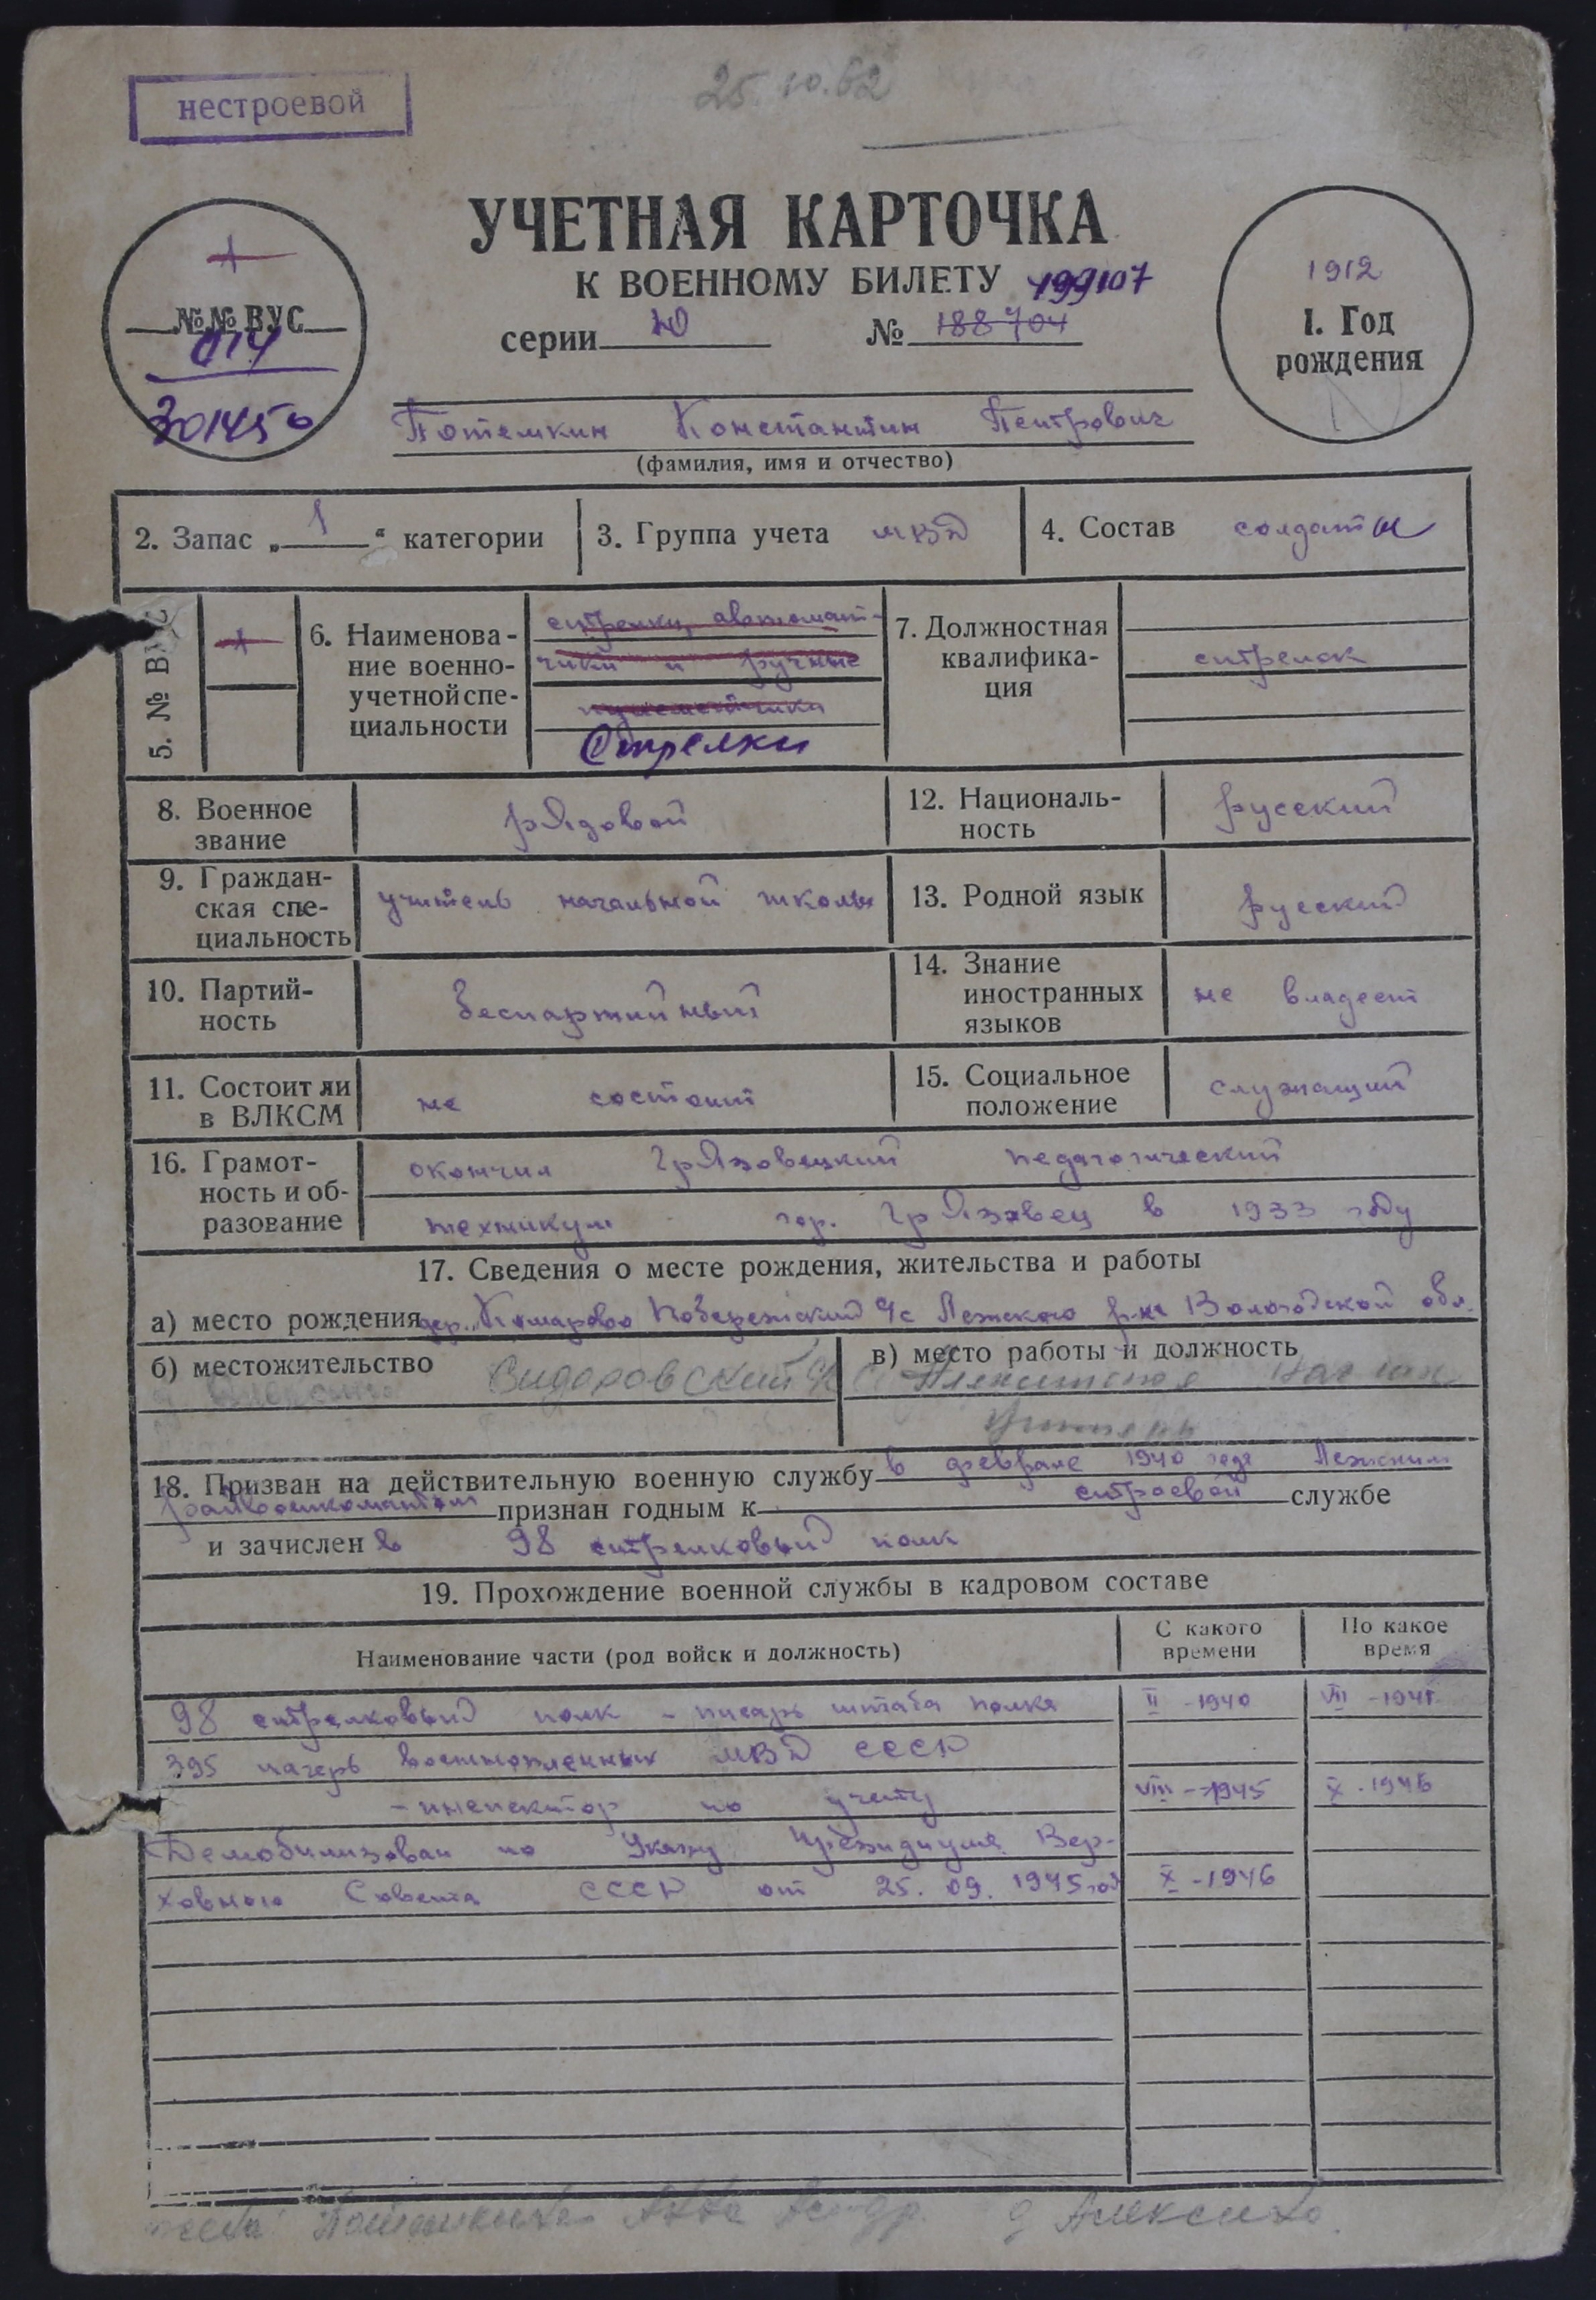 нестроевой
25.10.62
УЧЕТНАЯ КАРТОЧКА
К ВОЕННОМУ БИЛЕТУ 199107
серии Ю № 188704
1
№№ ВУС
014
301450
1912
1. Год
рождения
Потемкин Константин Петрович
(фамилия, имя и отчество)
2. Запас „ 1 “ категории
3. Группа учета МВД
4. Состав солдаты
5. № ВУС
1
6. Наименова-
ние военно-
учетной спе-
циальности
стрелки, автомат-
чики и ручные
пулеметчики
Стрелки
7. Должностная
квалифика-
ция
стрелок
8. Военное
звание
рядовой
12. Националь-
ность
русский
9. Граждан-
ская спе-
циальность
учитель начальной школы
13. Родной язык
русский
10. Партий-
ность
беспартийный
14. Знание
иностранных
языков
не владеет
11. Состоит ли
в ВЛКСМ
не состоит
15. Социальное
положение
служащий
16. Грамот-
ность и об-
разование
окончил Грязовецкий педагогический
техникум гор. Грязовец в 1933 году
17. Сведения о месте рождения, жительства и работы
а) место рождения дер. Комарово Побережский с/с Лежского р-на Вологодской обл.
б) местожительство
Сидоровский с/с
в) место работы и должность
нач шк
учитель
18. Призван на действительную военную службу в феврале 1940 года Лежским
райвоенкоматом признан годным к строевой службе
и зачислен в 98 стрелковый полк
19. Прохождение военной службы в кадровом составе
Наименование части (род войск и должность)
С какого
времени
По какое
время
98 стрелковый полк - писарь штаба полка II -1940 VII -1945
395 лагерь военнопленных МВД СССР
- инспектор по учету VIII -1945 X -1946
Демобилизован по Указу Президиума Вер-
ховного Совета СССР от 25. 09. 1945 год X -1946
жена Потемкина Анна д Алексино.